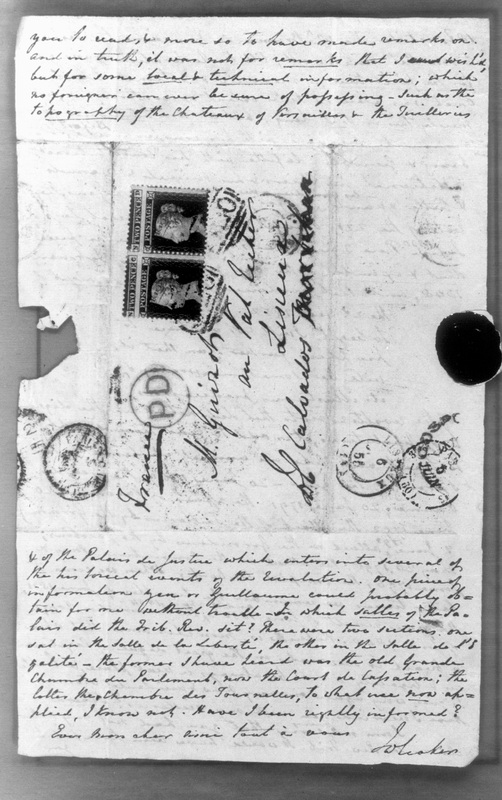 you to read, & more so to have made remarks on.
and in truth, it was not for remarks that I wish'd,
but for some local & technical information; which
no foreigner can ever be sure of possessing - such as the
topography of the Chateaux of Versailles & the Tuilleries
TWO PENCE
POSTAGE
TWO PENCE
POSTAGE
France
PD
M. Guizot
au Val Richer
Lisieux
Calvados
& of the Palais de Justice which enters into several of
the historical events of the Revolution. One piece of
information you or Guillaume could probably ob-
tain for me without trouble - In which salles of the Pa-
lais did the Trib. Rev. sit? There were two sections, one
sat in the Salle de la Liberté, the other in the Salle de l'E
galité - the former I have heard was the old Grande
Chambre du Parlement, now the Court de Cassation; the
latter the Chambre des Tournelles, to what use now ap-
plied, I know not. Have I been rightly informed?
Ever mon cher ami tout à vous
JWCroker